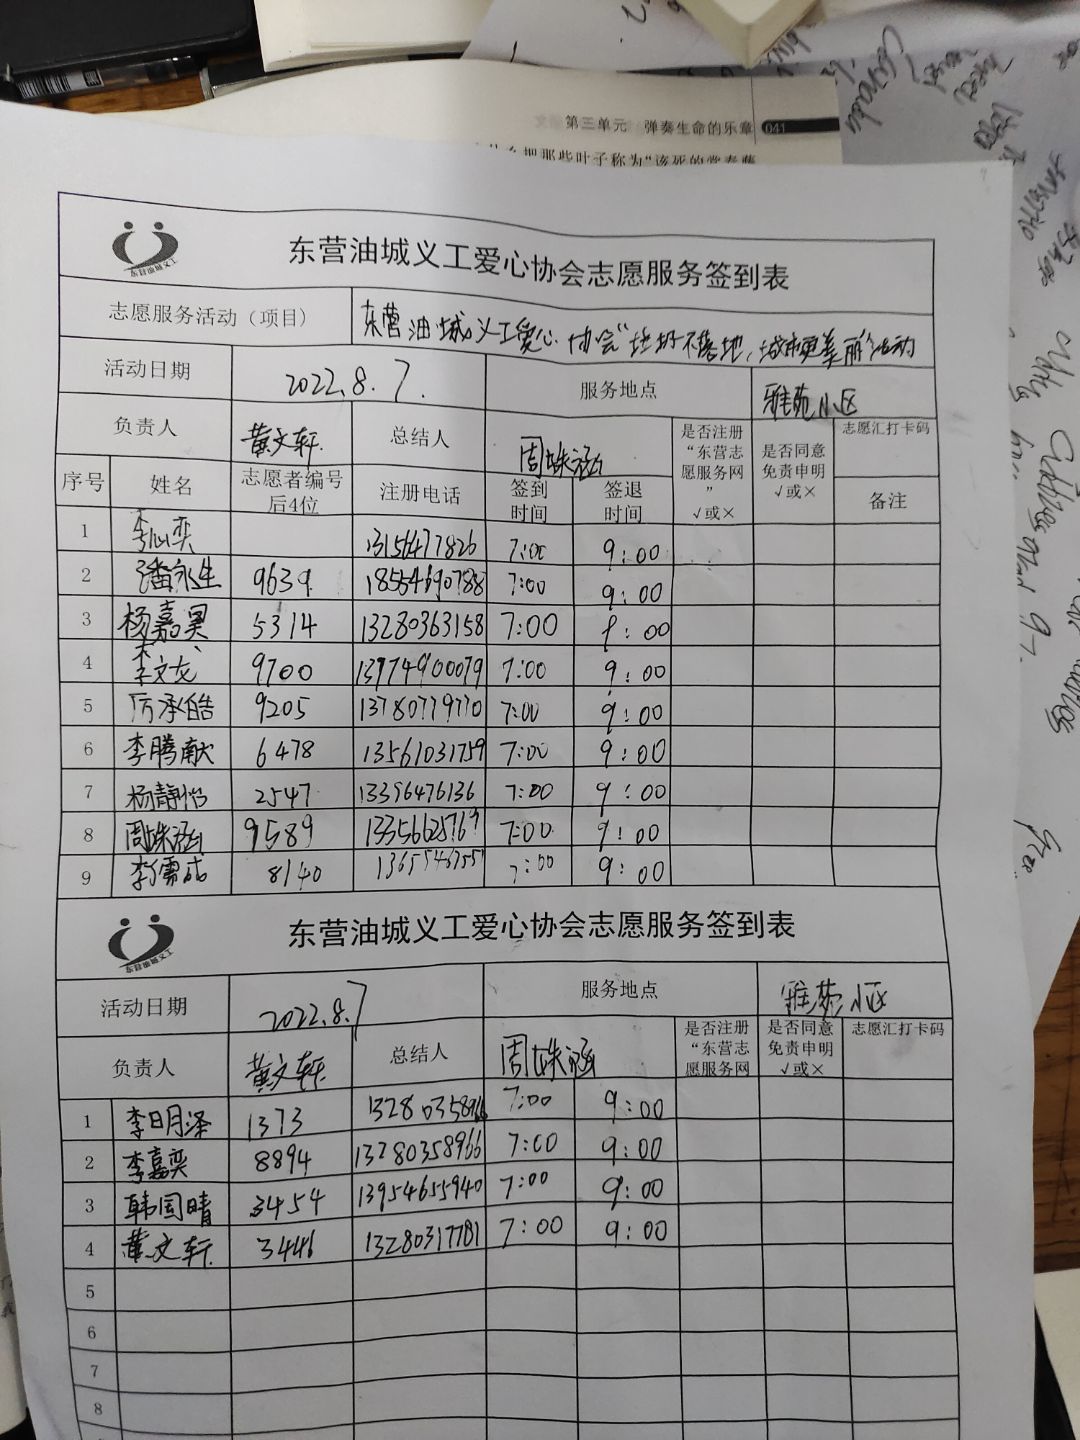 第三单元 弹奏生命的乐章 041
把那些叶子称为“该死的常春藤
东营油城义工爱心协会志愿服务签到表
志愿服务活动（项目） 东营油城义工爱心协会“垃圾不落地，城市更美丽”活动
活动日期 2022.8.7. 服务地点 雅苑小区
负责人 黄文轩 总结人 周姝涵 是否注册“东营志愿服务网” √或× 是否同意免责申明 √或× 志愿汇打卡码
序号 姓名 志愿者编号后4位 注册电话 签到时间 签退时间 备注
1 李心奕 13156477826 7:00 9:00
2 潘永生 9639 18554690788 7:00 9:00
3 杨嘉昊 5314 13280363158 7:00 9:00
4 李文龙 9700 13974900079 7:00 9:00
5 厉承皓 9205 13780779770 7:00 9:00
6 李腾献 6478 13561031759 7:00 9:00
7 杨静怡 2547 13396476136 7:00 9:00
8 周姝涵 9589 13356625769 7:00 9:00
9 8140 7:00 9:00
东营油城义工爱心协会志愿服务签到表
活动日期 2022.8.7 服务地点 雅苑小区
负责人 黄文轩 总结人 周姝涵 是否注册“东营志愿服务网 是否同意免责申明 √或× 志愿汇打卡码
1 李明泽 1373 13280358966 7:00 9:00
2 李嘉奕 8894 13280358966 7:00 9:00
3 韩国晴 3454 13954655940 7:00 9:00
4 黄文轩 3446 13280317781 7:00 9:00
5
6
7
8